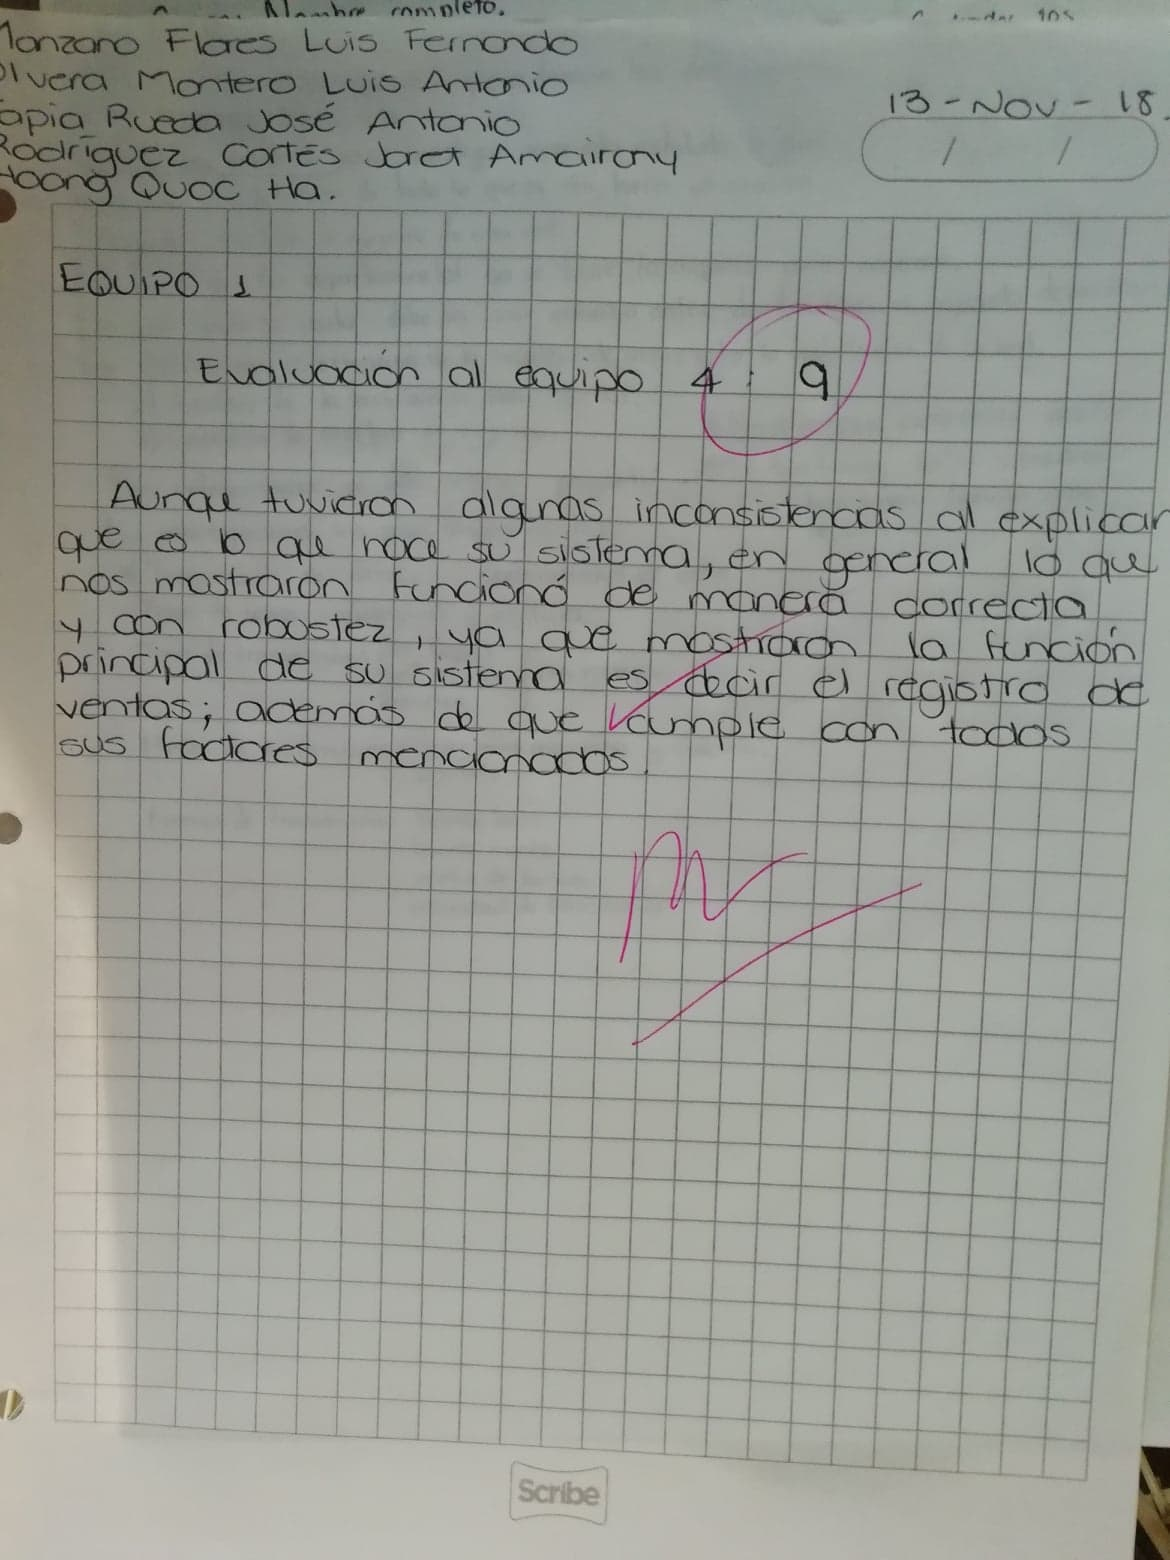 Nombre completo.
Manzano Flores Luis Fernando
Olvera Montero Luis Antonio
Tapia Rueda José Antonio
Rodríguez Cortés Jaret Amairany
Hoang Quoc Ha.
13-Nov-18.
/ /
EQUIPO 1
Evaluación al equipo 4: 9
Aunque tuvieron algunas inconsistencias al explicar
que es lo que hace su sistema, en general lo que
nos mostraron funcionó de manera correcta
y con robustez, ya que mostraron la función
principal de su sistema es decir el registro de
ventas; además de que cumple con todos
sus factores mencionados.
Scribe